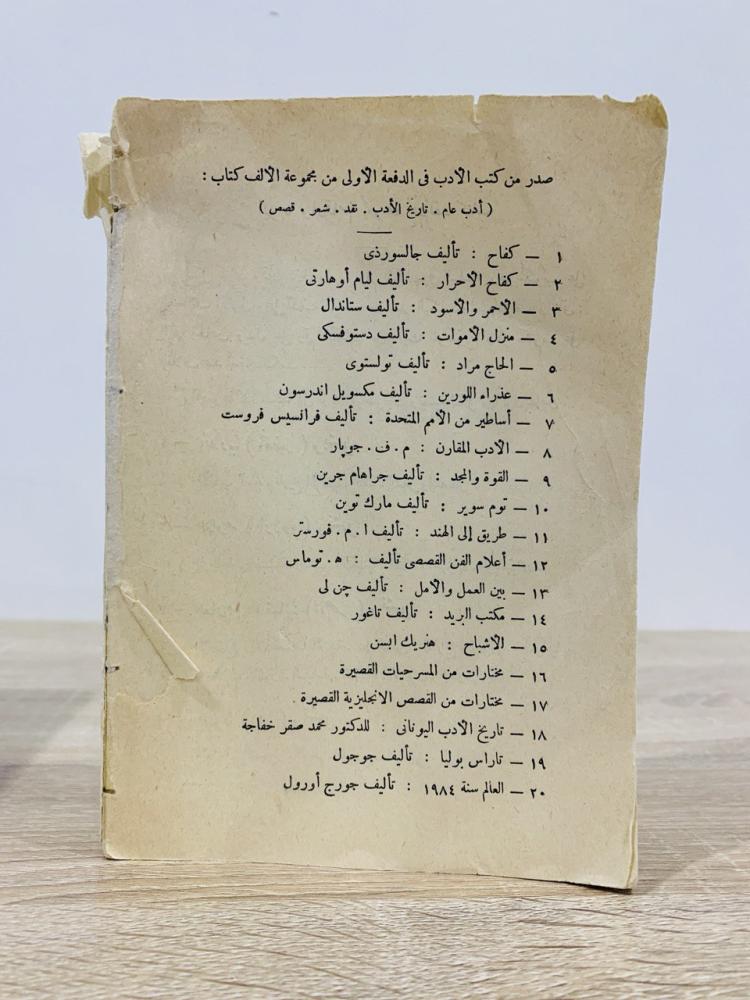 صدر من كتب الأدب فى الدفعة الأولى من مجموعة الألف كتاب :
( أدب عام . تاريخ الأدب . نقد . شعر . قصص )
١ — كفاح : تأليف جالسورذى
٢ — كفاح الأحرار : تأليف ليام أوهارتى
٣ — الأحمر والأسود : تأليف ستاندال
٤ — منزل الأموات : تأليف دستوفسكى
٥ — الحاج مراد : تأليف تولستوى
٦ — عذراء اللورين : تأليف مكسويل اندرسون
٧ — أساطير من الأمم المتحدة : تأليف فرانسيس فروست
٨ — الأدب المقارن : م . ف . جوپار
٩ — القوة والمجد : تأليف جراهام جرين
١٠ — توم سوير : تأليف مارك توين
١١ — طريق إلى الهند : تأليف ا . م . فورستر
١٢ — أعلام الفن القصصى تأليف : ه . توماس
١٣ — بين العمل والأمل : تأليف چن لى
١٤ — مكتب البريد : تأليف تاغور
١٥ — الأشباح : هنريك ابسن
١٦ — مختارات من المسرحيات القصيرة
١٧ — مختارات من القصص الانجليزية القصيرة .
١٨ — تاريخ الأدب اليونانى : للدكتور محمد صقر خفاجة
١٩ — تاراس بوليا : تأليف جوجول
٢٠ — العالم سنة ١٩٨٤ : تأليف جورج أورول